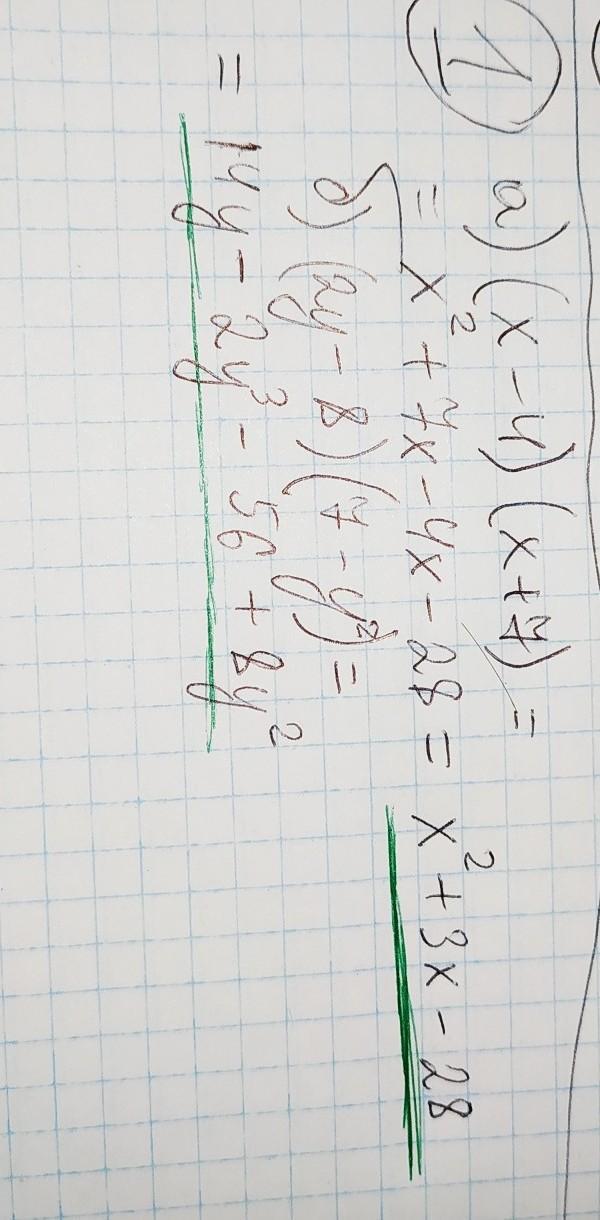 1 а) (x - 4) (x + 7) =
= x² + 7x - 4x - 28 = x² + 3x - 28
б) (2y - 8) (7 - y²) =
= 14y - 2y³ - 56 + 8y²